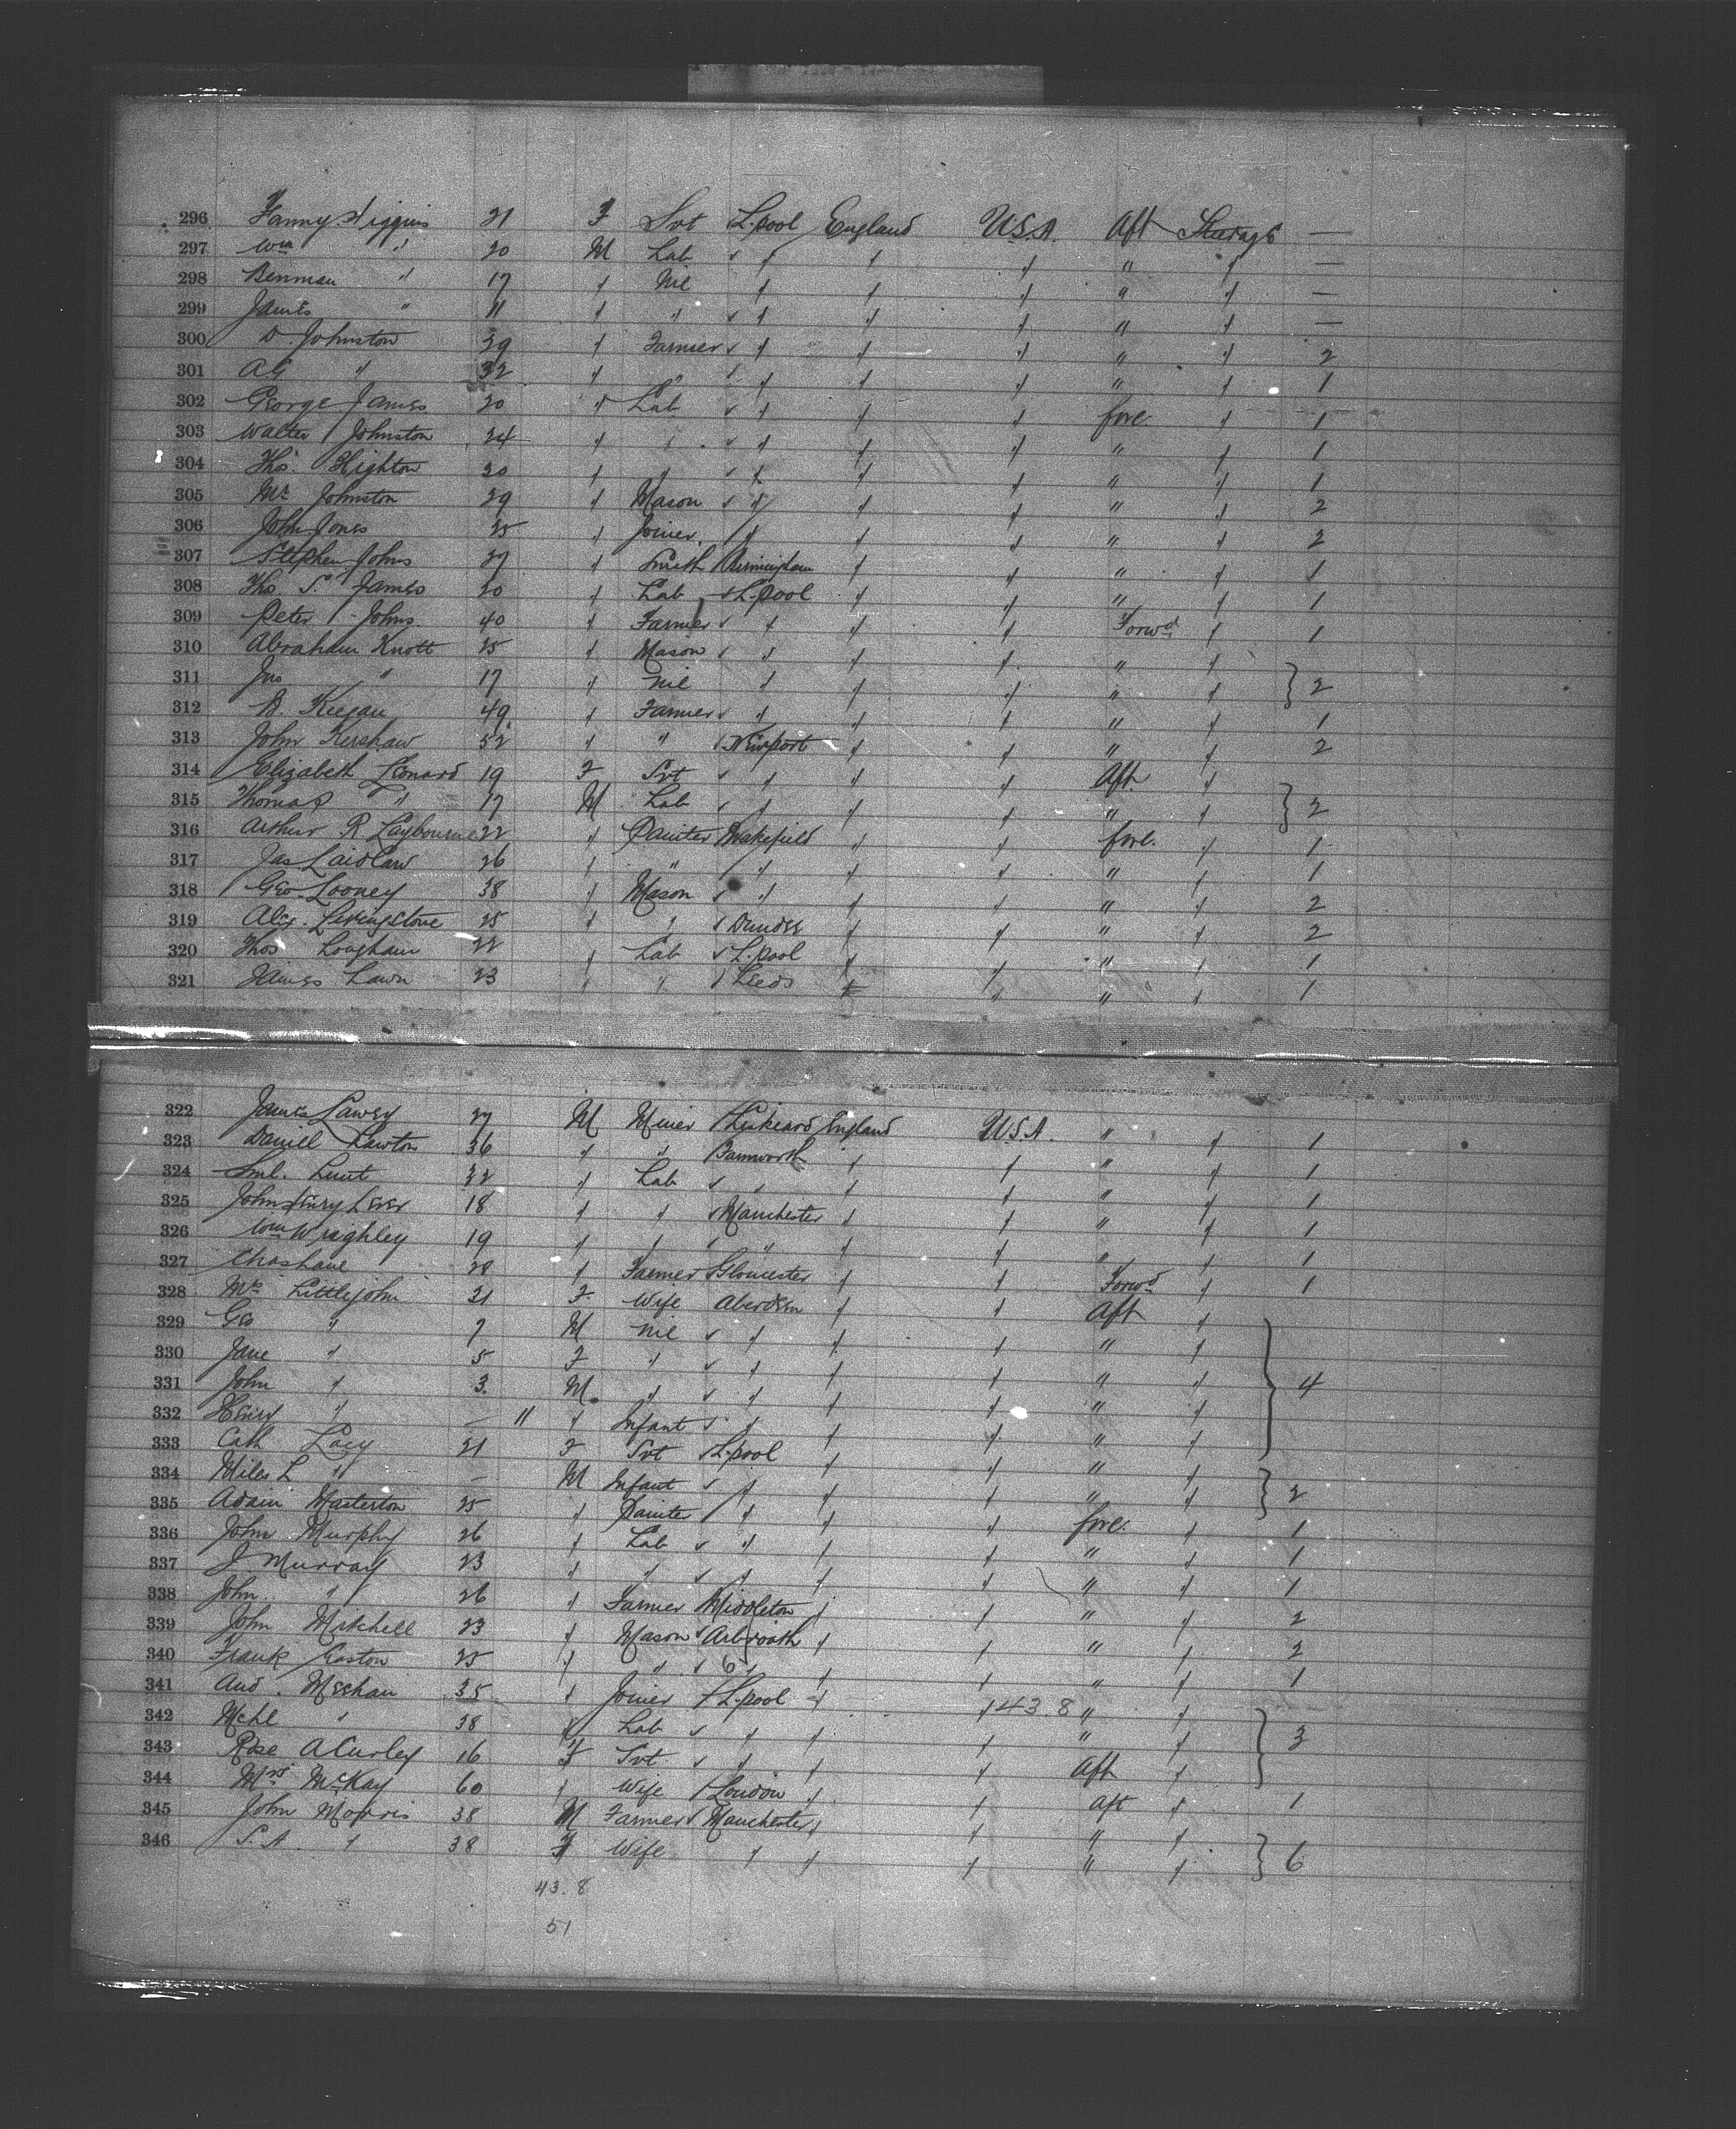 296 Fanny Higgins 21 F Svt L.pool England U.S.A. Aft Steerage —
297 Wm " 20 M Lab " " " " " —
298 Benman " 17 " Nil " " " " " —
299 James " 11 " " " " " " " —
300 D. Johnston 29 " Farmer " " " " " 2
301 A.G. " 32 " " " " " " " 1
302 George James 20 " Lab " " " fore " 1
303 Walter Johnston 24 " " " " " " " 1
304 Thos. Highton 20 " " " " " " " 1
305 Mr Johnston 29 " Mason " " " " " 2
306 John Jones 25 " Joiner " " " " " 2
307 Stephen Johns 27 " Smith Birmingham " " " " 1
308 Thos S. James 20 " Lab L.pool " " " " 1
309 Peter Johns 40 " Farmer " " " Forwd " 1
310 Abraham Knott 25 " Mason " " " " "
311 Jno " 17 " Nil " " " " " 2
312 Keegan 49 " Farmer " " " " " 1
313 John Kershaw 52 " " Newport " " " " 2
314 Elizabeth Leonard 19 F Svt " " " Aft "
315 Thomas " 17 M Lab " " " " " 2
316 Arthur R Laybourne 22 " Painter Wakefield " " fore. " 1
317 Jas Laidlaw 26 " " " " " " " 1
318 Geo Looney 38 " Mason " " " " " 2
319 Alex. Livingstone 25 " " Dundee " " " " 2
320 Thos Lougham 22 " Lab L.pool " " " " 1
321 James Lawn 23 " " Leeds " " " " 1
322 James Lawry 27 M Miner Liskeard England U.S.A. " " 1
323 Daniel Lawton 36 " " Farnworth " " " " 1
324 Saml. Lunt 22 " Lab " " " " " 1
325 John Henry Lever 18 " " Manchester " " " " 1
326 Wm Wrighley 19 " " " " " " " 1
327 Chas Lane 28 " Farmer Gloucester " " Forwd " 1
328 Mrs Littlejohn 31 F Wife Aberdeen " " Aft "
329 Geo " 7 M Nil " " " " "
330 Jane " 5 F " " " " " "
331 John " 3 M " " " " " " 4
332 Henry " — 11 " Infant " " " " "
333 Cath Lacy 21 F Svt L.pool " " " "
334 Miles L " — M Infant " " " " " 2
335 Adam Masterton 25 " Painter " " " fore. " 1
336 John Murphy 26 " Lab " " " " " 1
337 J Murray 23 " " " " " " " 1
338 John " 26 " Farmer Middleton " " " " 2
339 John Mitchell 23 " Mason Arbroath " " " " 2
340 Frank Easton 25 " " " " " " " 1
341 And. Meehan 35 " Joiner L.pool " " 43.8 " "
342 Mchl " 38 " Lab " " " " " 3
343 Rose A Curley 16 F Svt " " " Aft "
344 Mrs McKay 60 " Wife London " " Aft " 1
345 John Morris 38 M Farmer Manchester " " " "
346 S.A. " 38 F Wife " " " " " 6
43.8
51